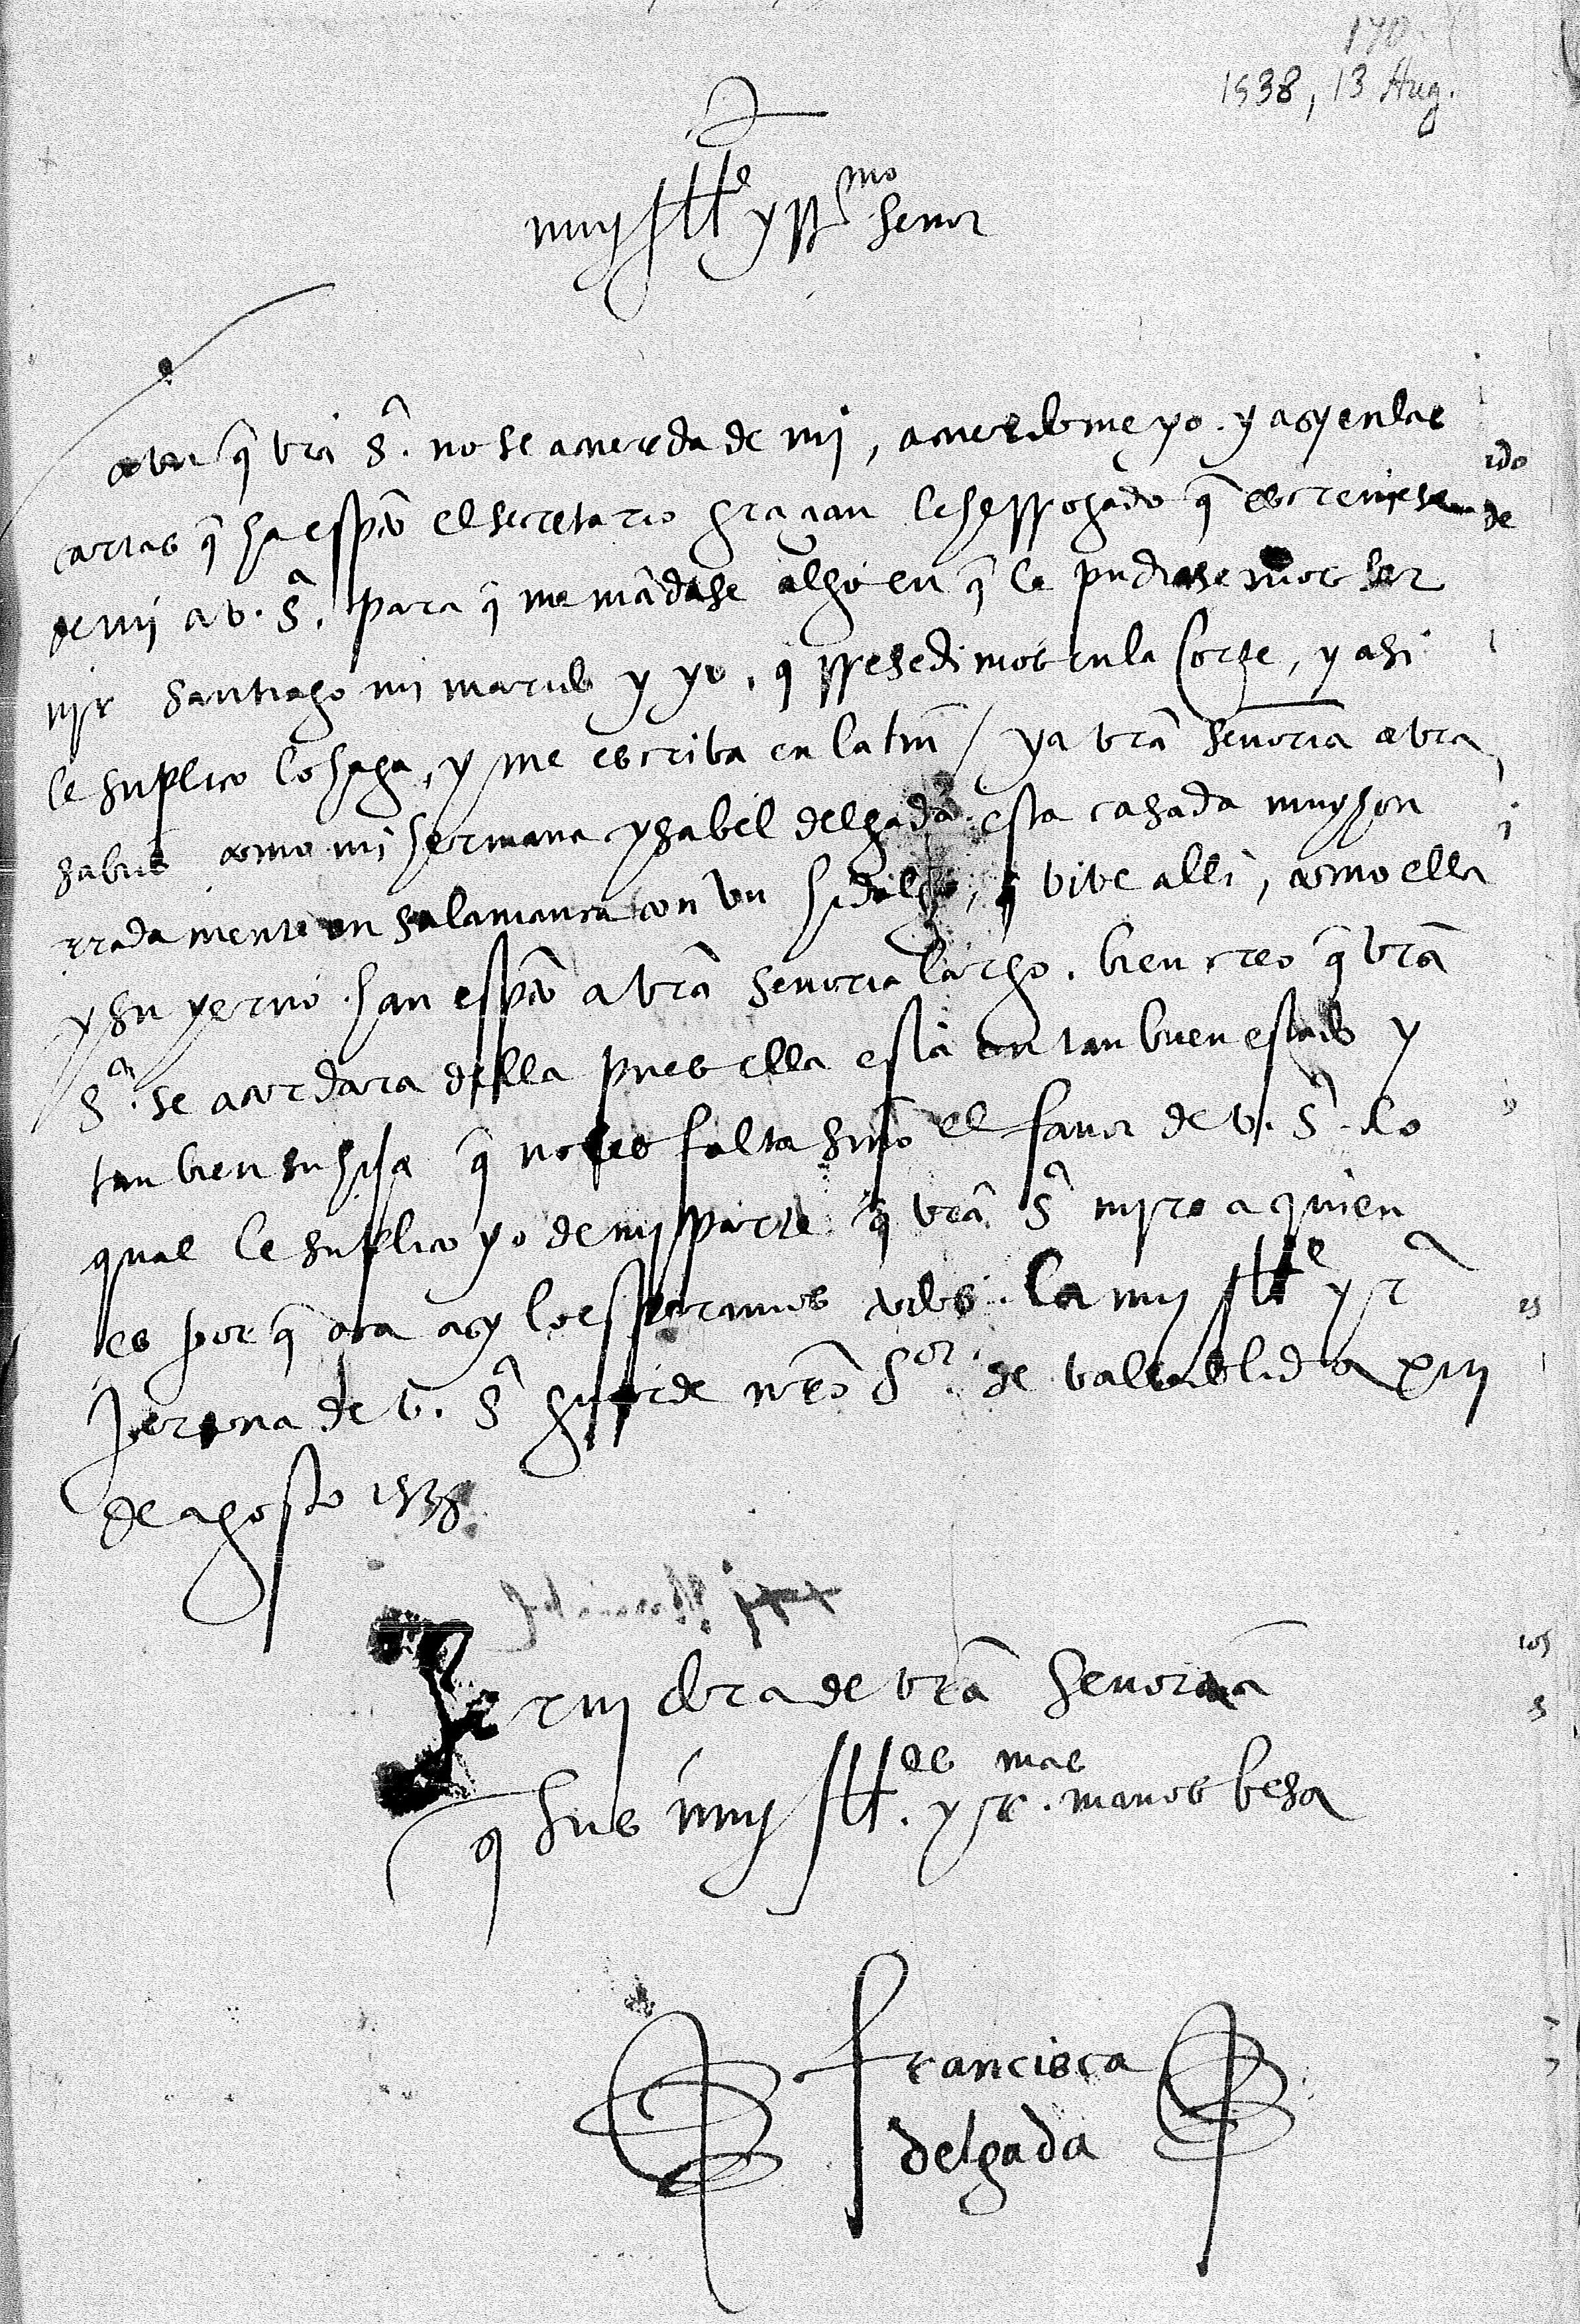 170
1538, 13 Aug.
muy Illᵉ y Rᵐᵒ señor
aun q̃ vrã S.ᵃ no se acuerda de mj, acuerdome yo. y asy en las
cartas q̃ ha escp̃to el secretario graçian le he rrogado q̃ escreujese
de mj a v. S.ᵃ para q̃ me mãdase algo en q̃ le pudiesemos ser
ujr santiago mi marido y yo, q̃ rresedimos en la Corte, y asi
le suplico lo haga, y me escriba en latin / ya vrã señoria avra
sabido como mi hermana ysabel delgada esta casada muy hon
rradamente en salamanca con vn hidalgo, q̃ vive alli, como ella
y su yerno han escp̃to a vrã señoria largo. bien creo q̃ vrã
S.ᵃ se acordara della pues ella està en tan buen estado y
tan bien su hija q̃ no les falta sino el favor de v. S.ᵃ lo
qual le suplico yo de mj parte q̃ vrã Sᵃ mjre a quien
es por q̃ aca asy lo esperamos todos. la muy Illᵉ y Rᵃ
persona de v. Sᵃ guarde nrõ S.ᵒʳ de valladolid a xiij
de agosto 1538
Serujdora de vrã señoria
q̃ sus muy Illᵉˢ. y R.ᵐᵃˢ manos besa
francisca
delgada